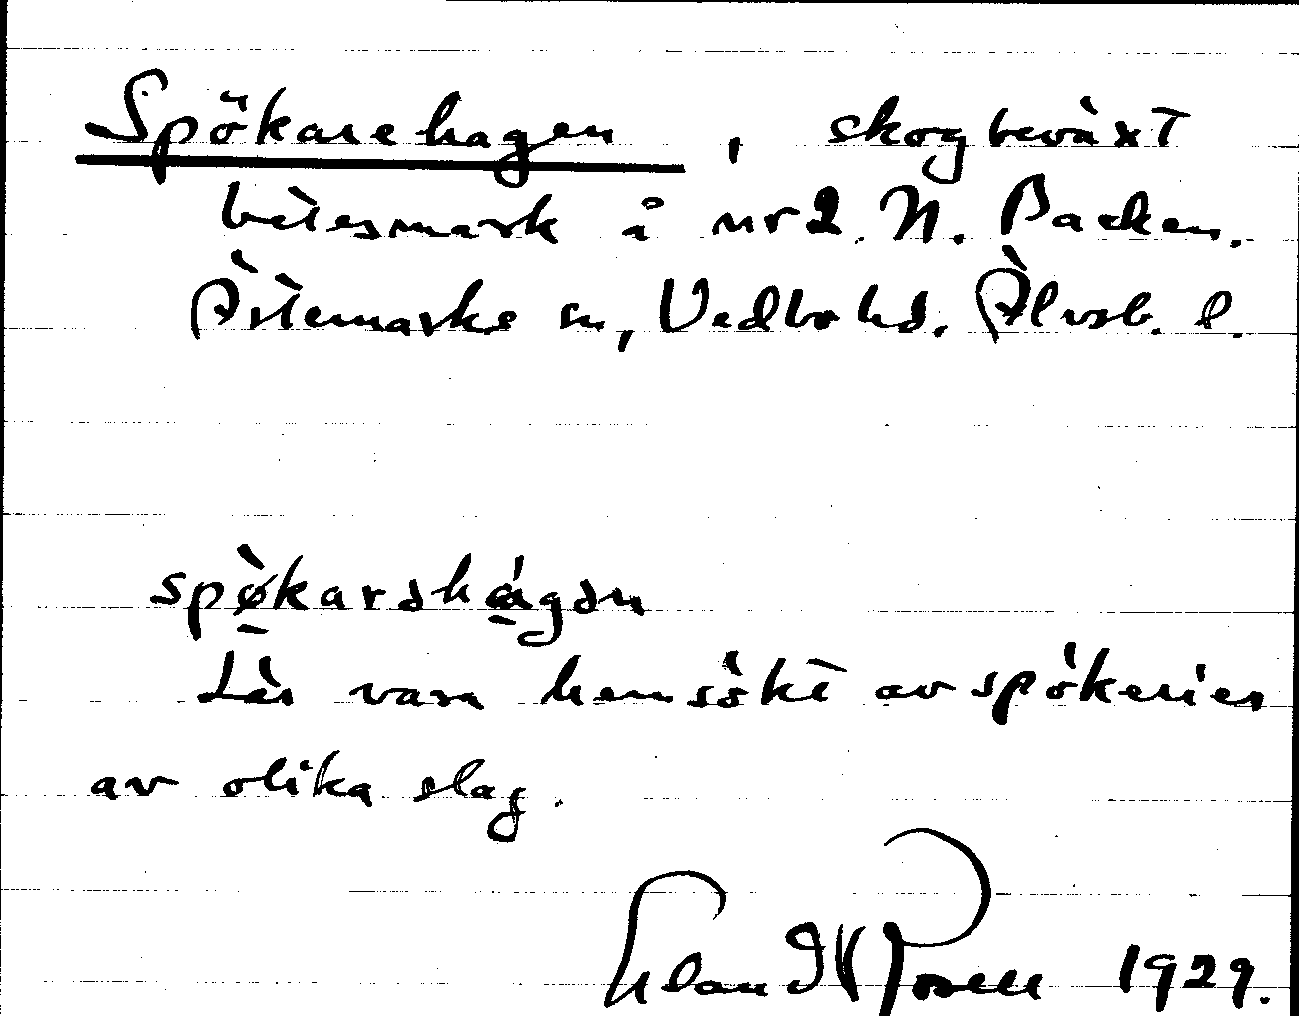 Spökarehagen, skogbeväxt
betesmark å nr 2 N. Backen.
Ärtemarks sn, Vedbo hd. Älvsb. l.
spø̀karəhágən
Lär vara hemsökt av spökerier
av olika slag.
Erland Rosell 1929.